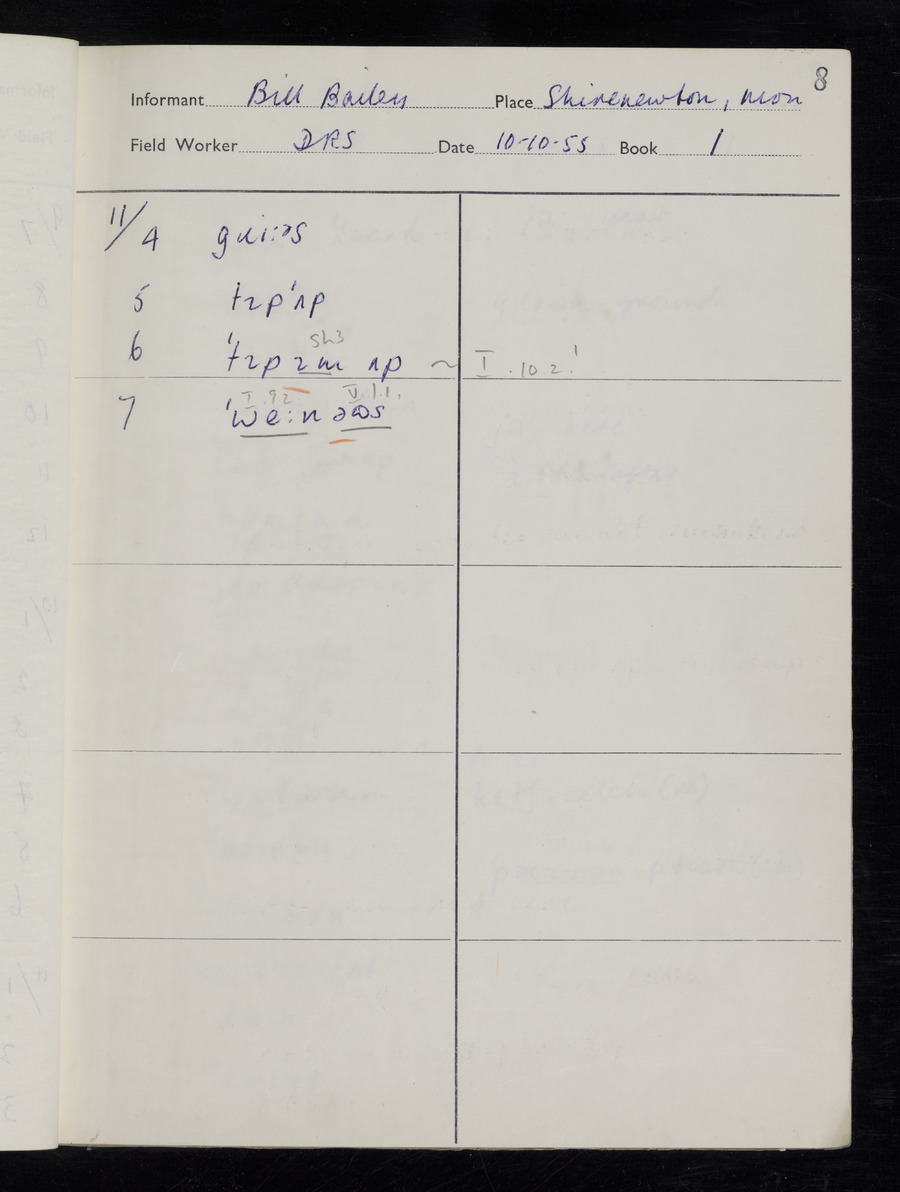 8
Informant Bill Bailey Place Shirenewton, Mon
Field Worker DRS Date 10-10-55 Book 1
11/4 gɹiːəs
5 tɪp'ʌp
Sh3
6 'tɪp ɪm ʌp ~ I.10 2.'
I.92 V.1.1.
7 'weːn əʊs